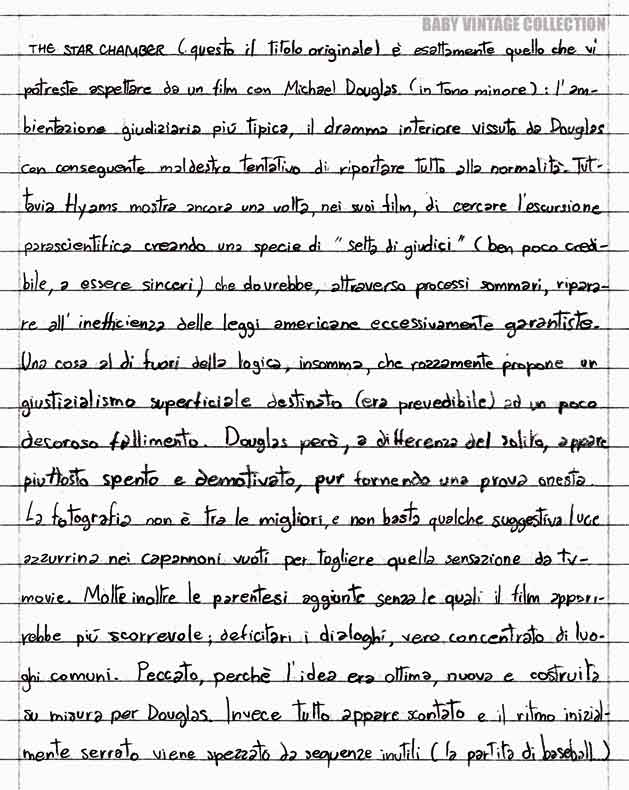 BABY VINTAGE COLLECTION
THE STAR CHAMBER (questo il titolo originale) è esattamente quello che vi
potreste aspettare da un film con Michael Douglas (in tono minore): l'am-
bientazione giudiziaria più tipica, il dramma interiore vissuto da Douglas
con conseguente maldestro tentativo di riportare tutto alla normalità. Tut-
tavia Hyams mostra ancora una volta, nei suoi film, di cercare l'escursione
parascientifica creando una specie di "setta di giudici" (ben poco credi-
bile, a essere sinceri) che dovrebbe, attraverso processi sommari, ripara-
re all'inefficienza delle leggi americane eccessivamente garantiste.
Una cosa al di fuori della logica, insomma, che rozzamente propone un
giustizialismo superficiale destinato (era prevedibile) ad un poco
decoroso fallimento. Douglas però, a differenza del solito, appare
piuttosto spento e demotivato, pur fornendo una prova onesta.
La fotografia non è tra le migliori, e non basta qualche suggestiva luce
azzurrina nei capannoni vuoti per togliere quella sensazione da tv-
movie. Molte inoltre le parentesi aggiunte senza le quali il film appari-
rebbe più scorrevole; deficitari i dialoghi, vero concentrato di luo-
ghi comuni. Peccato, perchè l'idea era ottima, nuova e costruita
su misura per Douglas. Invece tutto appare scontato e il ritmo inizial-
mente serrato viene spezzato da sequenze inutili (la partita di baseball)